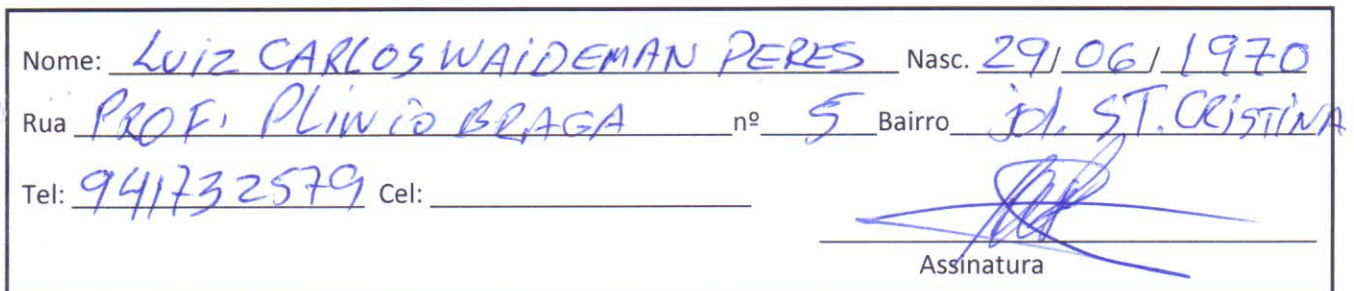 Nome: LUIZ CARLOS WAIDEMAN PERES Nasc. 29/06/1970
Rua PROF. PLINIO BRAGA nº 5 Bairro jd. ST. CRISTINA
Tel: 941732579 Cel:
Assinatura